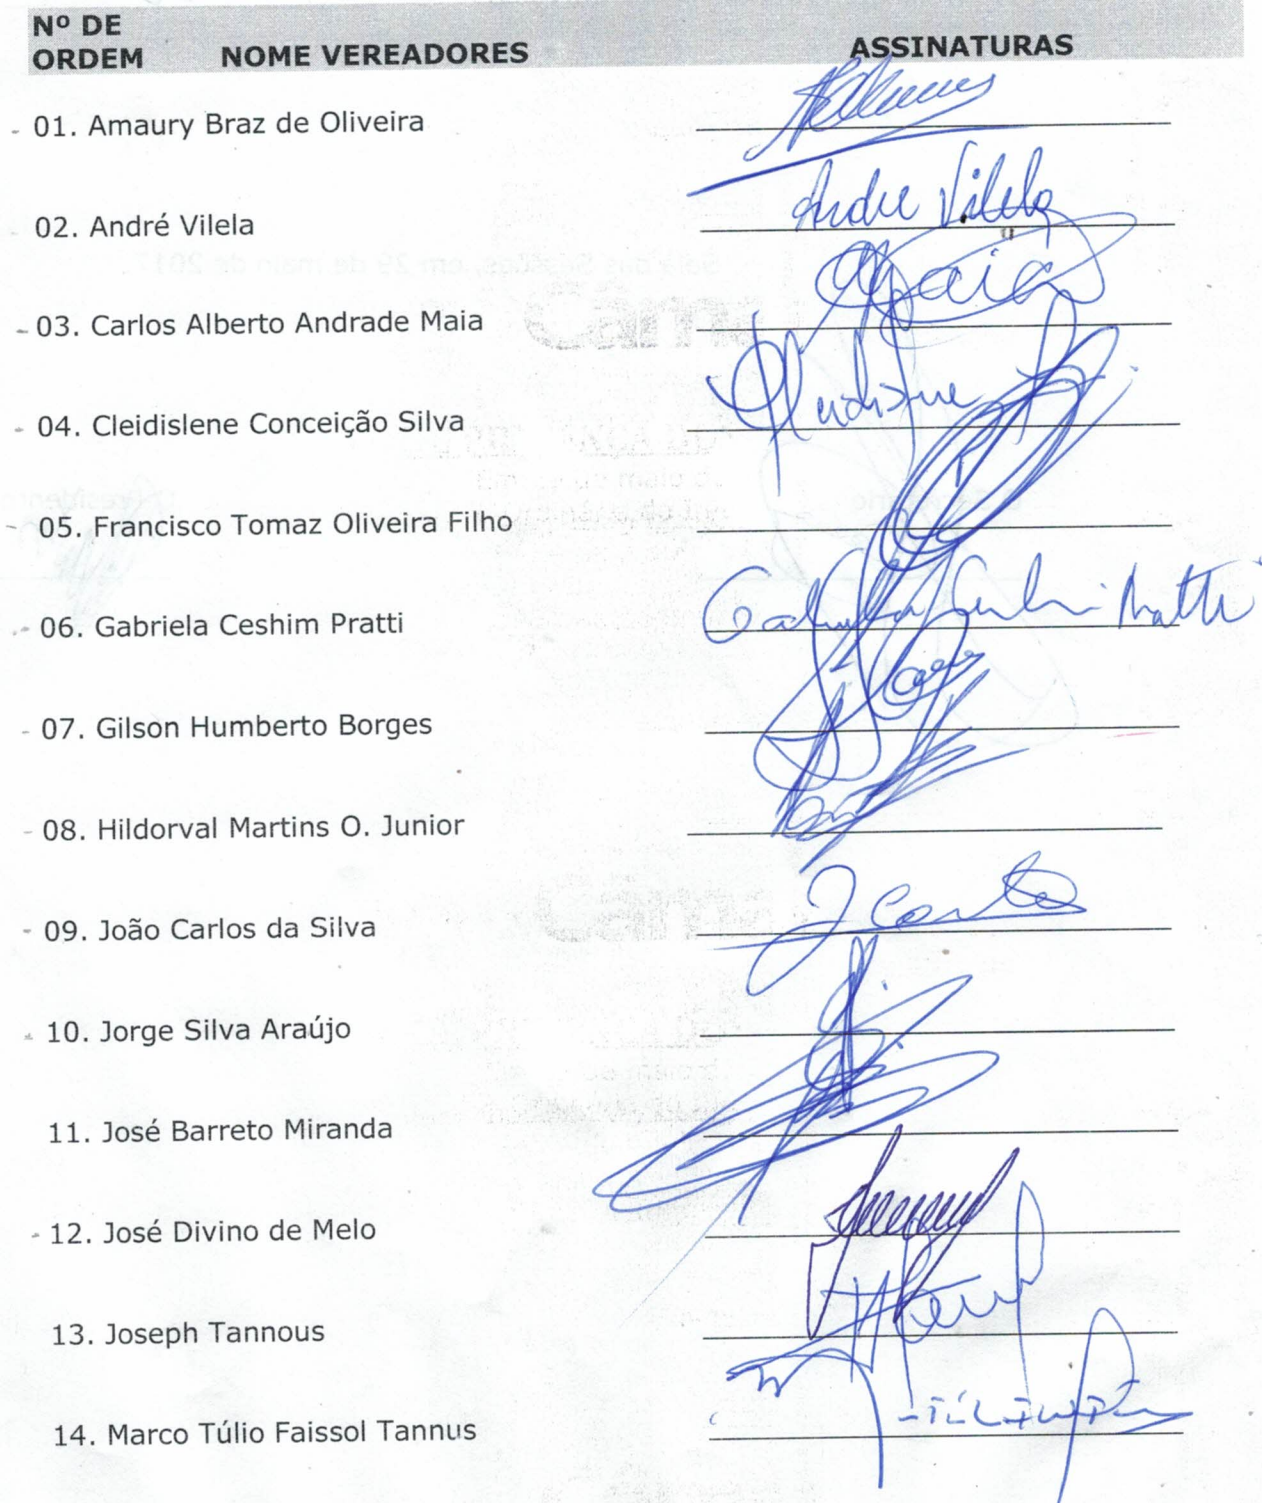 Nº DE
ORDEM NOME VEREADORES ASSINATURAS
01. Amaury Braz de Oliveira
02. André Vilela Andre Vilela
03. Carlos Alberto Andrade Maia Maia
04. Cleidislene Conceição Silva
05. Francisco Tomaz Oliveira Filho
06. Gabriela Ceshim Pratti Gabriela Ceshim Pratti
07. Gilson Humberto Borges
08. Hildorval Martins O. Junior
09. João Carlos da Silva J Carlos
10. Jorge Silva Araújo
11. José Barreto Miranda
12. José Divino de Melo
13. Joseph Tannous
14. Marco Túlio Faissol Tannus